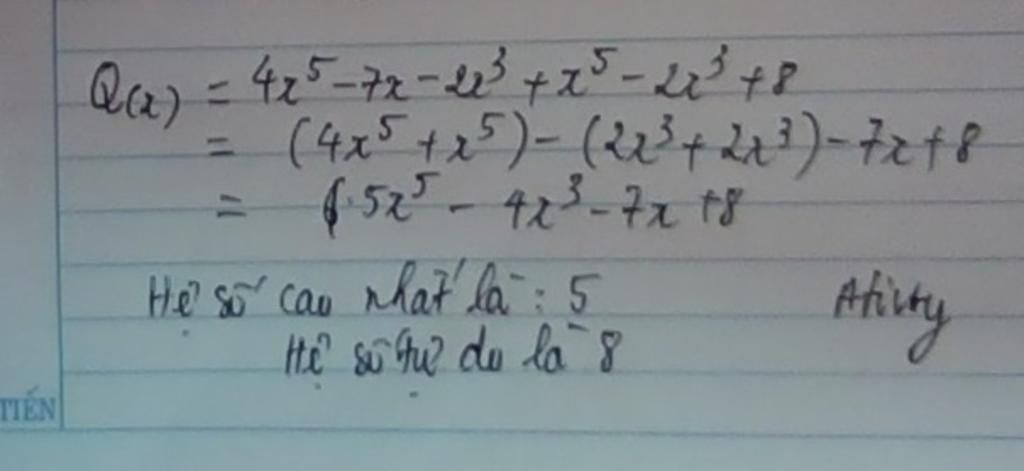 Q(x) = 4x⁵ - 7x - 2x³ + x⁵ - 2x³ + 8
= (4x⁵ + x⁵) - (2x³ + 2x³) - 7x + 8
= 5x⁵ - 4x³ - 7x + 8
Hệ số cao nhất là : 5
Hệ số tự do là 8
TIẾN